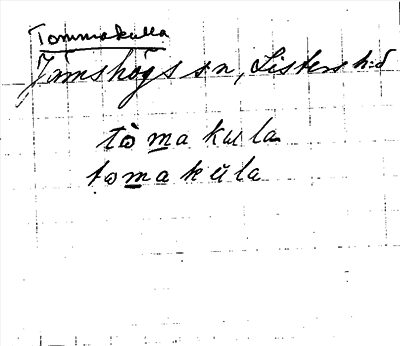 Tommakulla
Jämshögs sn, Listers hd
tò̱makula
tom̱akŭla